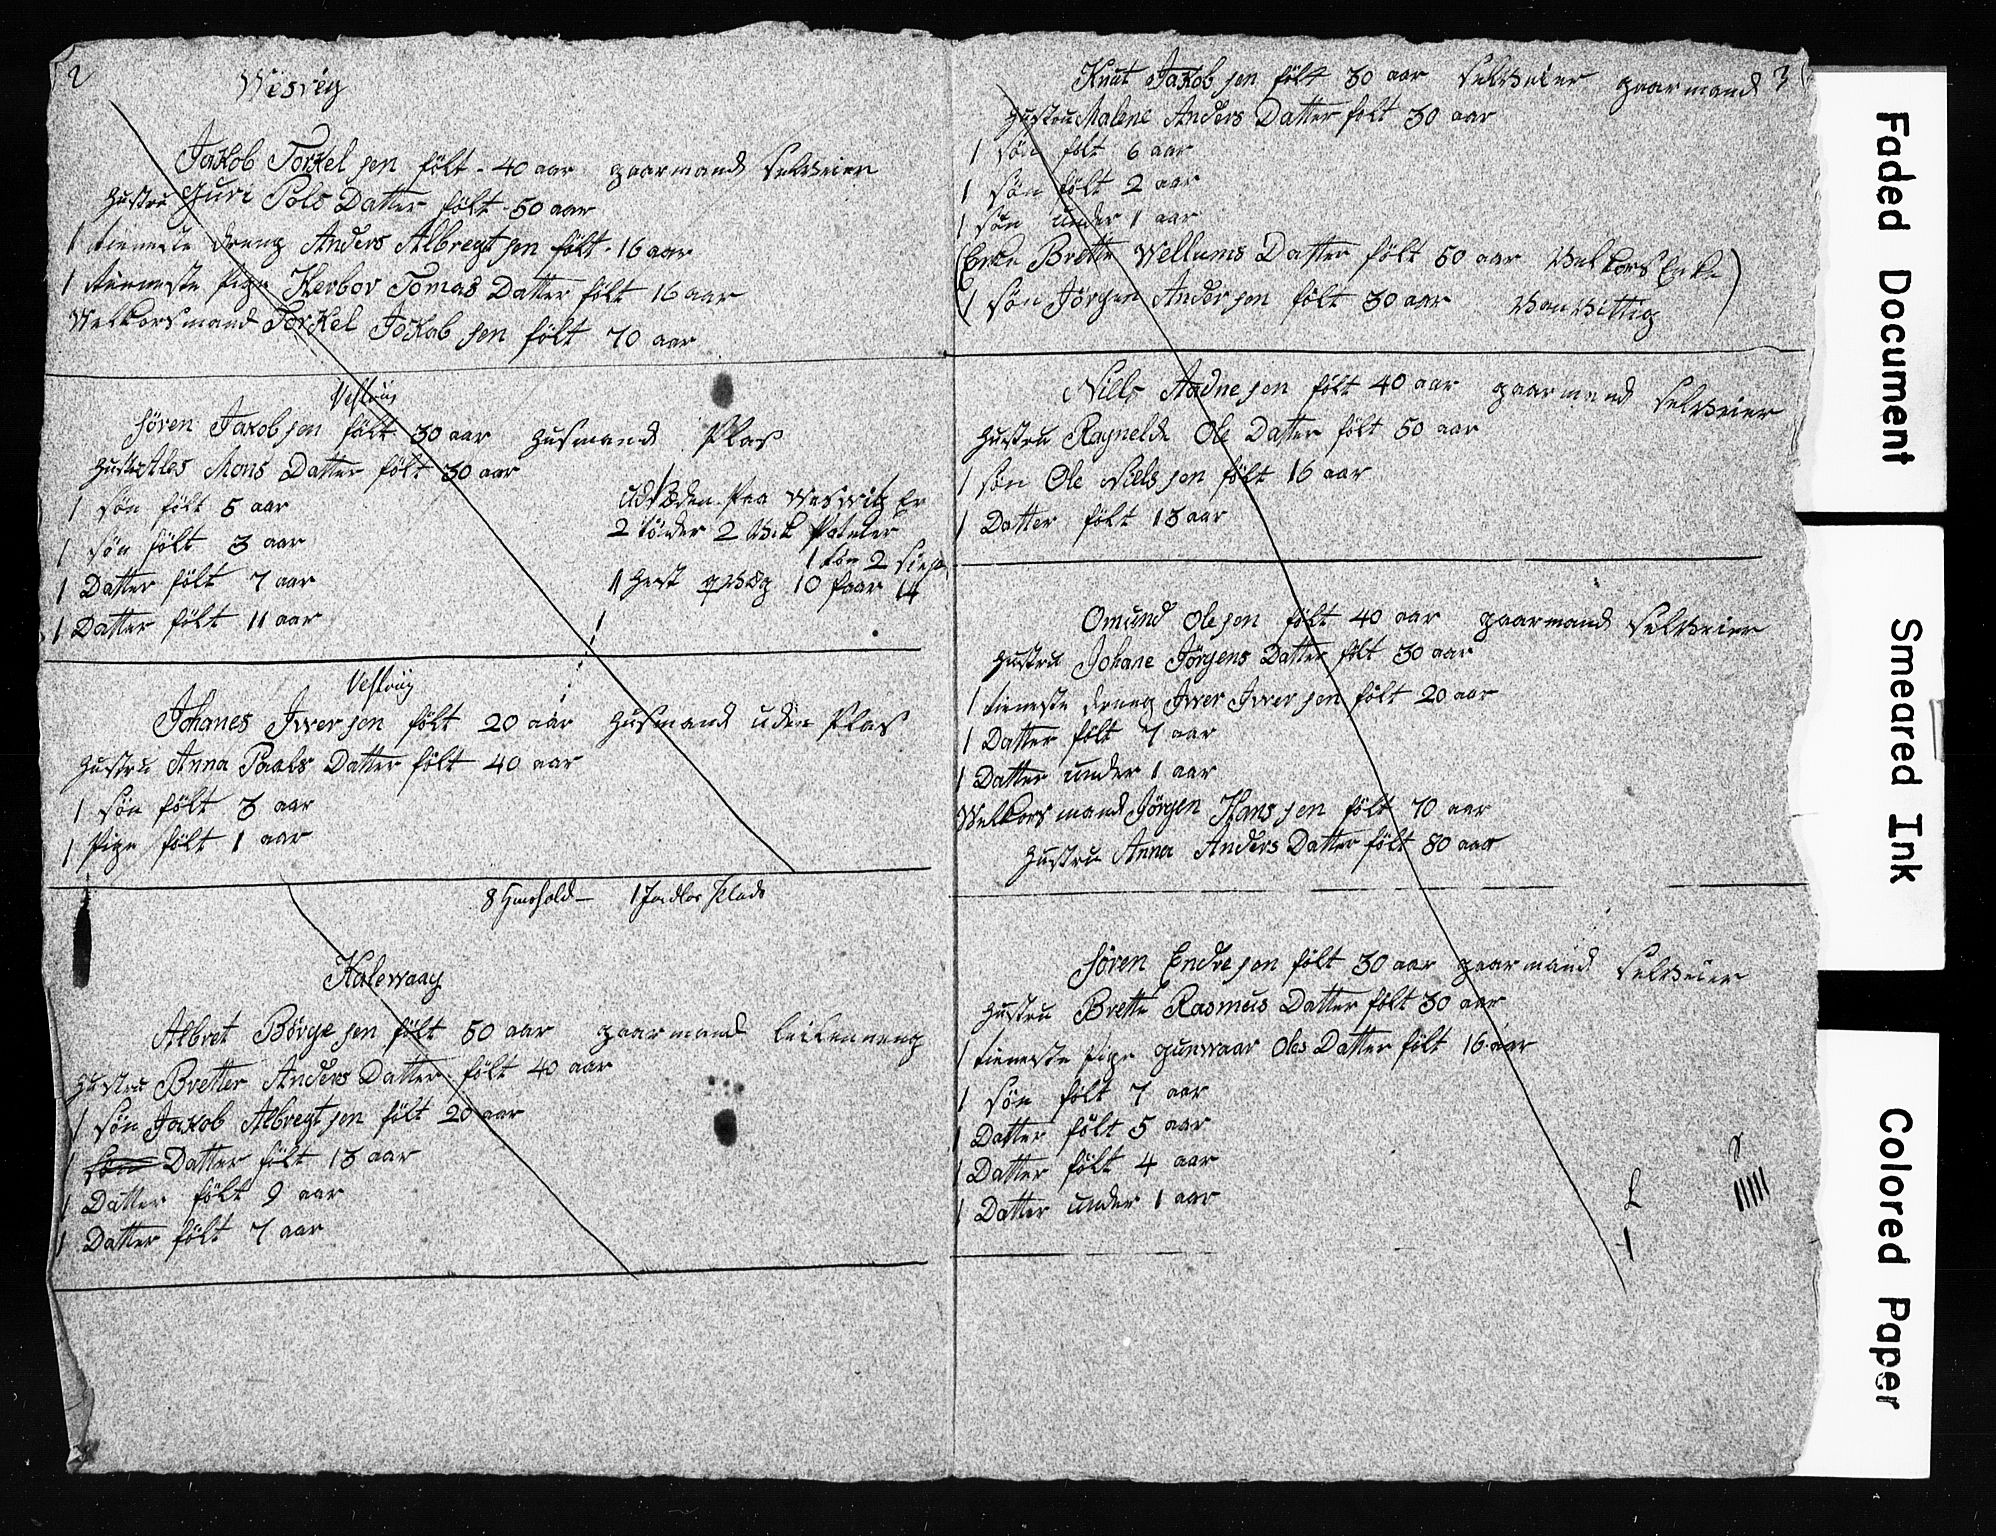 2
Wesvig
Jakob Torkel sen fölt - 40 aar gaarmand selveier
Hustru Guri Pols Datter fölt - 50 aar
1 tieneste dreng Anders Albregt sen fölt - 16 aar
1 tieneste Pige Herbor Tomas Datter fölt 16 aar
Welkorsmand Torkel Jokob sen fölt 70 aar
Vestviig
Sören Jakob sen fölt 30 aar Husmand Plas
Hustru Ales Mons Datter fölt 30 aar
1 sön fölt 5 aar
1 sön fölt 3 aar
1 Datter fölt 7 aar
1 Datter fölt 11 aar
Udsæden Paa Er
2 tönder 2 Poteter
1 tön 2
1 Hest 10 faar 14
Vestviig
Johanes Iwer sen fölt 20 aar Husmand uden Plas
Hustru Anna Paals Datter fölt 40 aar
1 sön fölt 3 aar
1 Pige fölt 1 aar
8 Huushold - 1 Plads
Kalewaag
Albret Börge sen fölt 50 aar gaarmand leilenneng
Hustru Bretter Anders Datter fölt 40 aar
1 sön Jakob Albregt sen fölt 20 aar
1 sön Datter fölt 13 aar
1 Datter fölt 9 aar
1 Datter fölt 7 aar
3
Knut Jakob sen fölt 30 aar selveier gaarmand
Hustru Malene Anders Datter fölt 30 aar
1 sön fölt 6 aar
1 sön fölt 2 aar
1 sön under 1 aar
(Enke Brette Wellums Datter fölt 50 aar Velkors Enke)
(1 sön Jörgen Ander sen fölt 30 aar Vanvittig)
Niels Aadne sen fölt 40 aar gaarmand selveier
Hustru Ragnelde Ole Datter fölt 50 aar
1 sön Ole Niels sen fölt 16 aar
1 Datter fölt 13 aar
Omund Ole sen fölt 40 aar gaarmand selveier
Hustru Johane Jörgens Datter fölt 30 aar
1 tieneste dreng Iwer Iwer sen fölt 20 aar
1 Datter fölt 7 aar
1 Datter under 1 aar
Welkors mand Jörgen Hans sen fölt 70 aar
Hustru Anna Anders Datter fölt 80 aar
Sören Endre sen fölt 30 aar gaarmand selveier
Hustru Brette Rasmus Datter fölt 30 aar
1 tieneste Pige gunwaar Oles Datter fölt 16 aar
1 sön fölt 7 aar
1 Datter fölt 5 aar
1 Datter fölt 4 aar
1 Datter under 1 aar
L
1
S
IIIII
Faded Document
Smeared Ink
Colored Paper